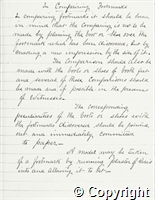 In Comparing Footmarks
In comparing footmarks it should be borne
in mind that the comparison is not to be
made by placing the boot or shoe over the
footmark which has been discovered, but by
making a new impression by the side of it.
The Comparison should also be
made with the boots or shoes of both feet
and several of these Comparisons should
be made and if possible in the presence
of Witnesses.
The corresponding
peculiarities of the boots or shoes with
the footmarks discovered should be pointed
out and immediately committed
to paper —
A model may be taken
of a footmark by running plaster of Paris
into and allowing it to